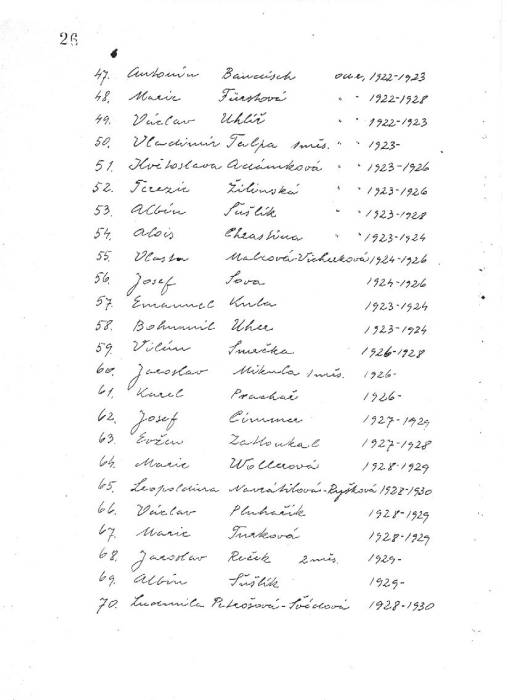 26
47. Antonín Bauwisch 1922-1923
48. Marie Fürstová " " 1922-1928
49. Václav Uhlíř " " 1922-1923
50. Vladimír Talpa 1měs. " " 1923-
51. Květoslava Adámková " " 1923-1926
52. Terezie Žilinská " " 1923-1926
53. Albín Šušlík " " 1923-1928
54. Alois Chrastina " " 1923-1924
55. Vlasta 1924-1926
56. Josef Sova 1924-1926
57. Emanuel Kuba 1923-1924
58. Bohumil Uher 1923-1924
59. Vilém Smrčka 1926-1928
60. Jaroslav Mikula 1měs. 1926-
61. Karel Prachař 1926-
62. Josef Cimmer 1927-1929
63. Evžen Zatloukal 1927-1928
64. Marie Wollerová 1928-1929
65. Leopoldina Navrátilová-Ryšková 1928-1930
66. Václav Pluhařík 1928-1929
67. Marie Turková 1928-1929
68. Jaroslav Reček 2měs. 1929-
69. Albín Šušlík 1929-
70. Ludmila Petrošová-Švédová 1928-1930